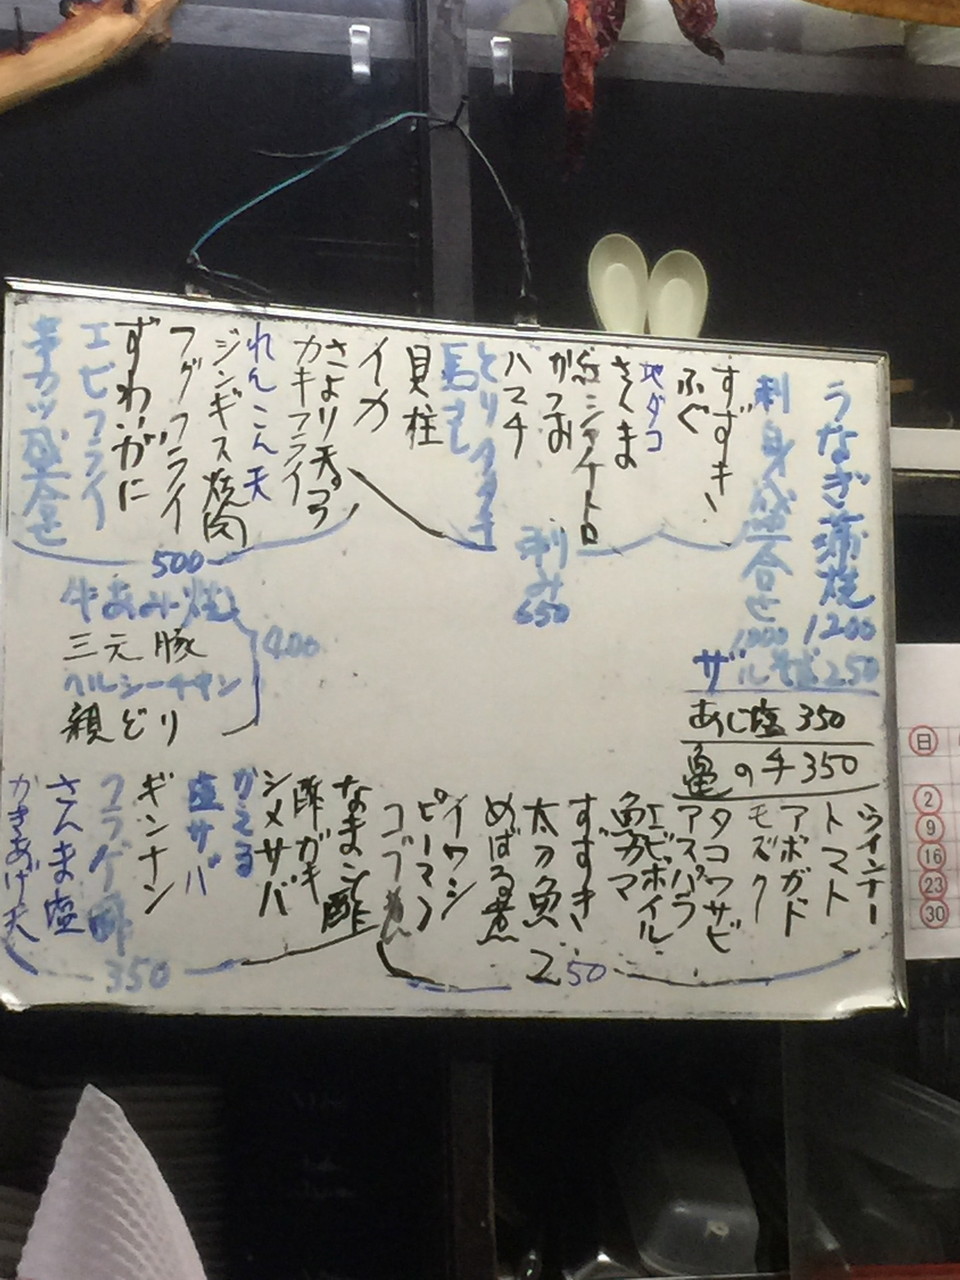 うなぎ蒲焼1200
刺身盛合せ1000
すずき
ふぐ
地ダコ
さんま
かつお
ハマチ
とりタタキ
馬さし
貝柱
イカ
刺み
650
さより天プラ
カキフライ
れんこん天
ジンギス焼肉
フグフライ
ずわいがに
エビフライ
串カツ盛合せ
500
ザルそば250
あじ塩350
亀の手350
牛あみ焼
三元豚
ヘルシーチキン
親どり
400
ウインナー
トマト
アボガド
モズク
タコワサビ
アスパラ
エビボイル
魚カマ
すずき
太刀魚
めばる煮
イワシ
ピーマン
250
なまこ酢
酢ガキ
シメサバ
塩サバ
ギンナン
クラゲ酢
さんま塩
かきあげ天
350
日
2
9
16
23
30